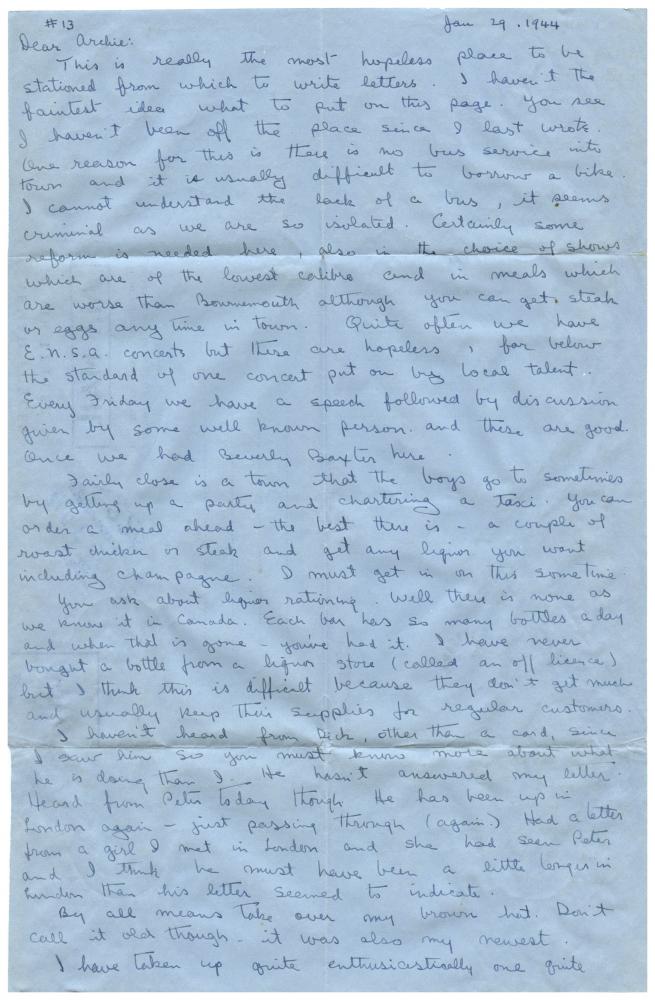 #13 Jan 29. 1944
Dear Archie:
This is really the most hopeless place to be
stationed from which to write letters. I haven't the
faintest idea what to put on this page. You see
I haven't been off the place since I last wrote.
One reason for this is there is no bus service into
town and it is usually difficult to borrow a bike.
I cannot understand the lack of a bus, it seems
criminal as we are so isolated. Certainly some
reform is needed here, also in the choice of shows
which are of the lowest calibre and in meals which
are worse than Bournemouth although you can get steak
or eggs any time in town. Quite often we have
E.N.S.A. concerts but these are hopeless, far below
the standard of one concert put on by local talent.
Every Friday we have a speech followed by discussion
given by some well known person. and these are good.
Once we had Beverly Baxter here.
Fairly close is a town that the boys go to sometimes
by getting up a party and chartering a taxi. You can
order a meal ahead - the best there is - a couple of
roast chicken or steak and get any liquor you want
including champagne. I must get in on this sometime.
You ask about liquor rationing. Well there is none as
we know it in Canada. Each bar has so many bottles a day
and when that is gone - you've had it. I have never
bought a bottle from a liquor store (called an off licence)
but I think this is difficult because they don't get much
and usually keep their supplies for regular customers.
I haven't heard from Dick, other than a card, since
I saw him so you must know more about what
he is doing than I. He hasn't answered my letter.
Heard from Peter today though. He has been up in
London again - just passing through (again.) Had a letter
from a girl I met in London and she had seen Peter
and I think he must have been a little longer in
London than his letter seemed to indicate.
By all means take over my brown hat. Don't
call it old though - it was also my newest.
I have taken up quite enthusiastically one quite